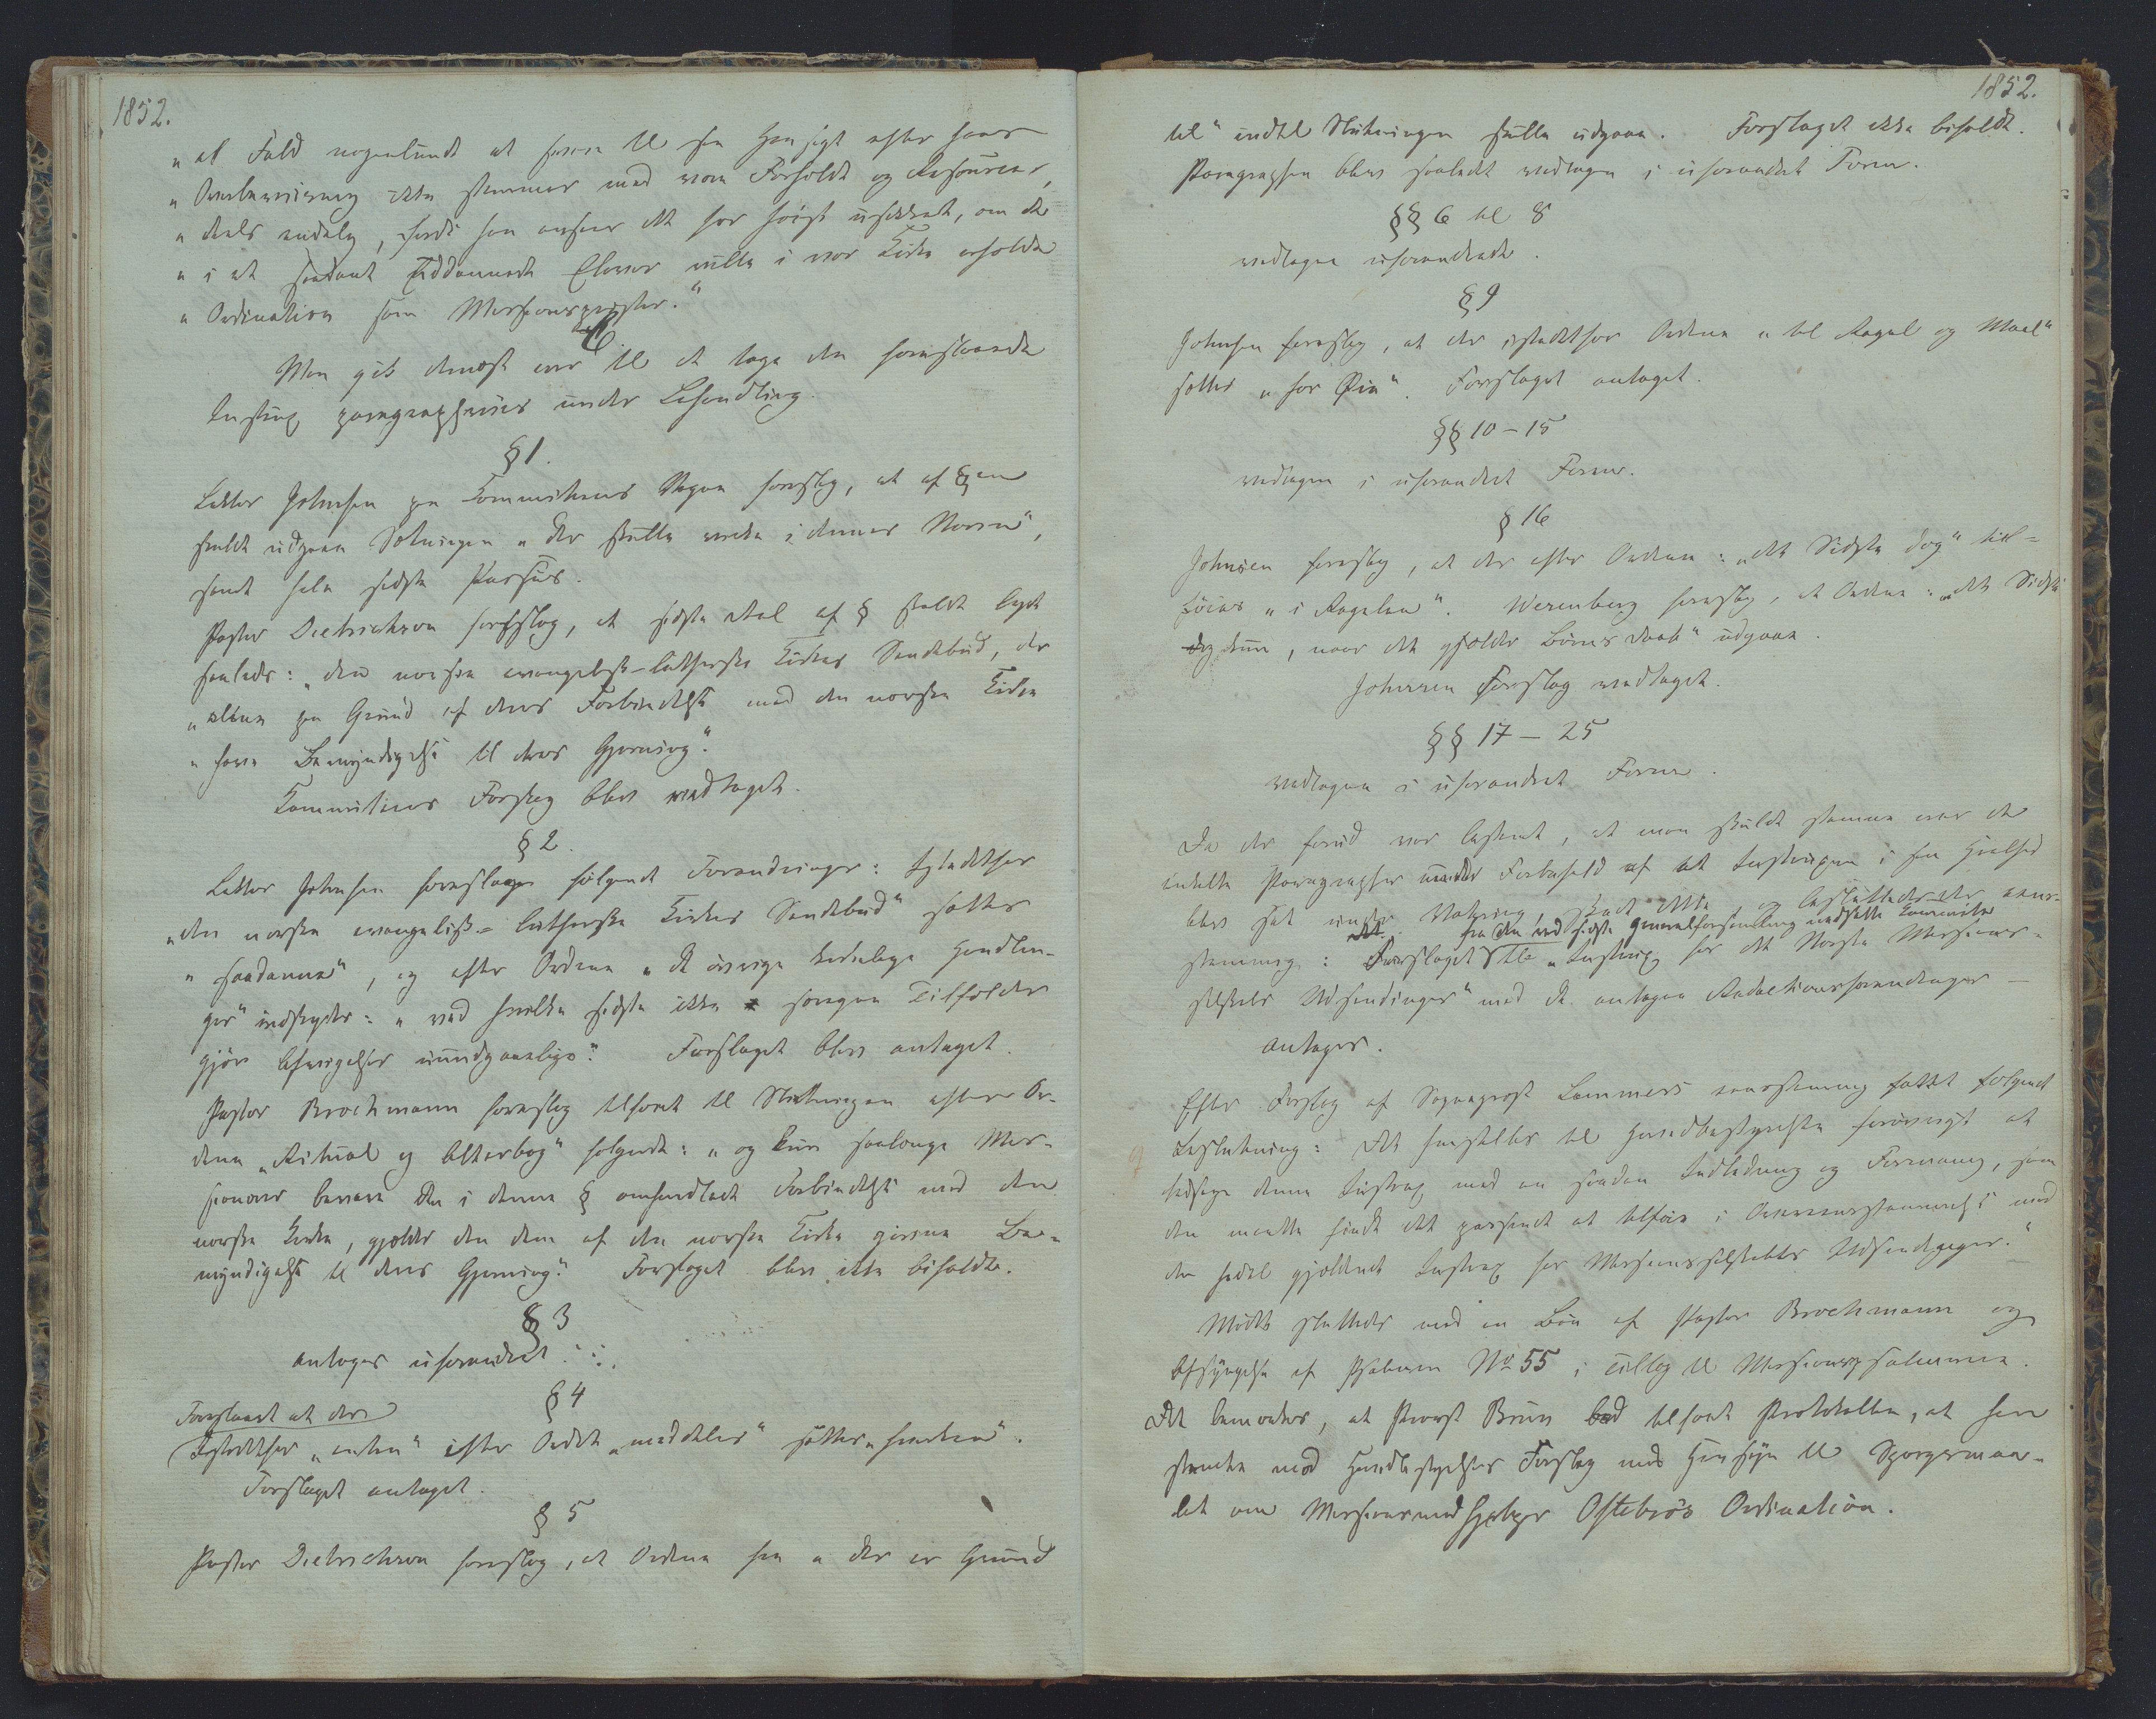 1852.
„al Fald nogenlunde at svare til sin Hensigt efter hans
„Overbeviisning ikke stemmer med vore Forholde og Resourcer,
„deels endelig, fordi han anseer det for høist usikkert, om de
„i et saadant uddannede Elever ville i vor Kirke erholde
„Ordination som Missionsprester.“
Man gik dernæst over til at tage den foreslaaede
Instrux paragraphviis under Behandling.
§ 1.
Lektor Johnson paa Kommiteens Vegne foreslog, at af §en
skulde udgaae Sætningen „der skulle virke i dennes Navn“,
samt hele sidste Passus.
Pastor Dietrichson foreslog, at sidste Deel af § skulde lyde
saaledes: „den norske evangelisk-lutherske Kirkes Sendebud, der
„alene paa Grund af deres Forbindelse med den norske Kirke
„have Bemyndigelse til deres Gjerning.“
Kommiteens Forslag blev vedtaget.
§ 2.
Lektor Johnson foreslog følgende Forandringer: Istedetfor
„den norske evangelisk-lutherske Kirkes Sendebud“ sættes
„saadanne“, og efter Ordene „de øvrige kirkelige Handlin-
ger“ indskydes: „ved hvilke sidste ikke særegne Tilfælde
gjøre Afvigelser uundgaaelige“. Forslaget blev antaget.
Pastor Brochmann foreslog tilføiet til Slutningen efter Or-
dene „Ritual og Alterbog“ følgende: „og kun saalænge Mis-
sionærer bevare den i denne § omhandlede Forbindelse med den
norske Kirke, gjælder den dem af den norske Kirke givne Be-
myndigelse til deres Gjerning.“ Forslaget blev ikke bifaldt.
§ 3
antages uforandret.
§ 4
Foreslaaet at der
Istedetfor „enten“ efter Ordet „meddeles“ sættes „hverken“.
Forslaget antaget.
§ 5
Pastor Dietrichson foreslog, at Ordene fra „der er Grund
1852.
til“ indtil Slutningen skulle udgaae. Forslaget ikke bifaldt.
Paragraphen blev saaledes vedtagen i uforandret Form.
§§ 6 til 8
vedtagne uforandrede.
§ 9
Johnson foreslog, at der istedetfor Ordene „til Regel og Maal“
sættes „for Øie“. Forslaget antaget.
§§ 10 – 15
vedtagne i uforandret Form.
§ 16
Johnsen foreslog, at der efter Ordene: „det Sidste dog“ til-
føies „i Regelen“. Wexenberg foreslog, at Ordene: „det Sidste
dog kun, naar det gjælder Børnedaab“ udgaae.
Johnsen Forslag vedtaget.
§§ 17 – 25
vedtagne i uforandret Form.
Da der forud var bestemt, at man skulde stemme over de
enkelte Paragrapher under Forbehold af at Instruxen i sin Heelhed
blev sat under Votering, skede dette og besluttedes der eens-
fra den ved sidste Generalforsamling nedsatte Kommite
stemmig: Forslaget til „Instrux for det Norske Missions-
selskabs Udsendinger“ med de antagne Redactionsforandringer –
antages.
Efter Forslag af Sogneprest Lammers eenstemmig fattet følgende
Beslutning: Det henstilles til Hovedbestyrelsen forøvrigt at
ledsage denne Instrux med en saadan Indledning og Formaning, som
den maatte finde det passende at tilføie i Overeensstemmelse med
den hidtil gjældende Instrux for Missionsselskabets Udsendinger.“
Mødet sluttedes med en Bøn af Pastor Brochmann og
Afsyngelse af Psalmen No 55 i Tillæg til Missionspsalmerne.
Det bemærkes, at Provst Bruun bad tilført Protokollen, at han
stemte mod Hovedbestyrelsens Forslag med Hensyn til Spørgsmaa-
let om Missionsmedhjelper Oftebrøs Ordination.